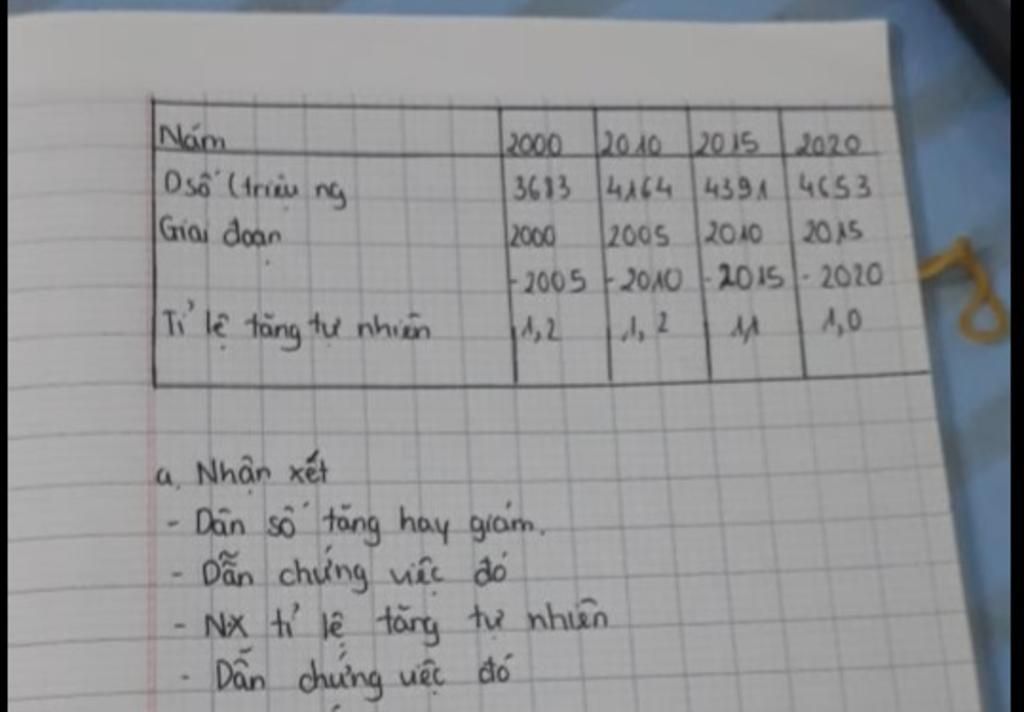 Năm 2000 2010 2015 2020
Dsố (triệu ng 3683 4164 4391 4653
Giai đoạn 2000 2005 2010 2015
-2005 -2010 -2015 -2020
Tỉ lệ tăng tự nhiên 1,2 1,2 1,1 1,0
a, Nhận xét
- Dân số tăng hay giảm.
- Dẫn chứng việc đó
- NX tỉ lệ tăng tự nhiên
- Dẫn chứng việc đó